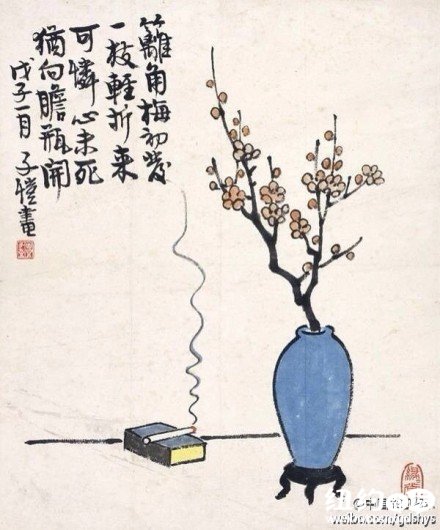 籬角梅初發
一枝輕折來
可憐心未死
猶向膽瓶開
戊子一月 子愷畫
weibo.com/gdshys